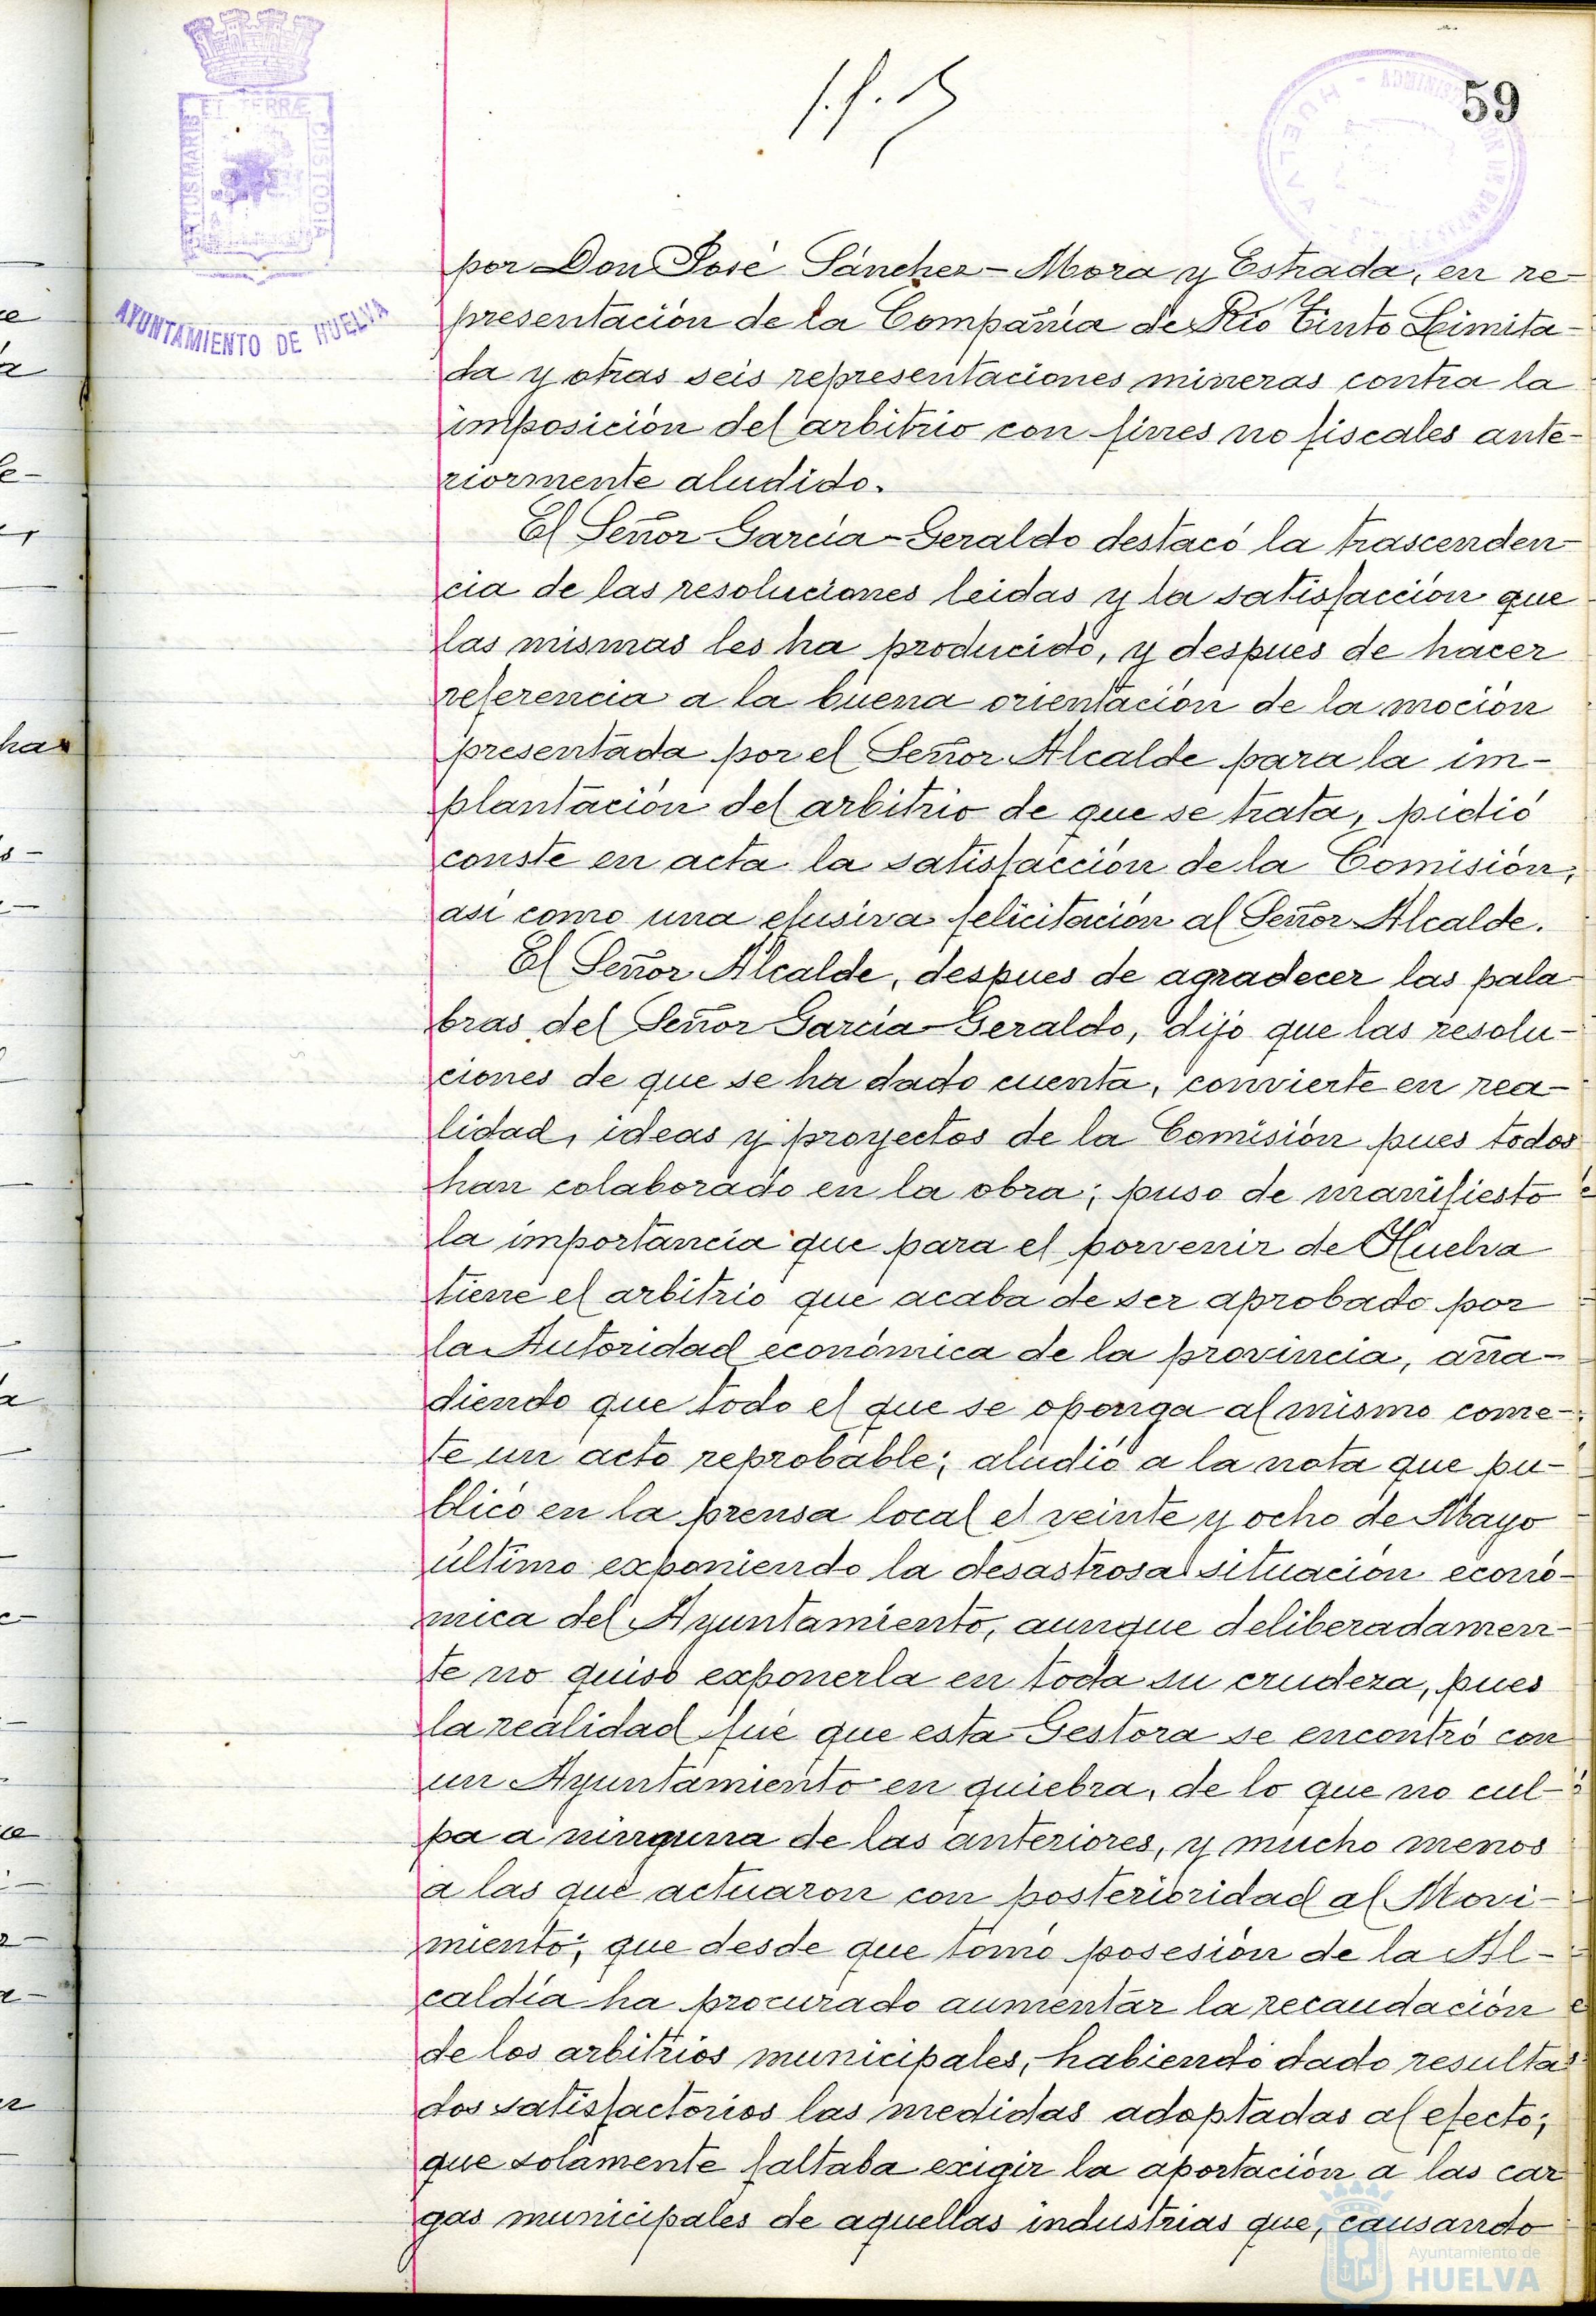 59
AYUNTAMIENTO DE HUELVA
por Don José Sánchez-Mora y Estrada, en re-
presentación de la Compañía de Rio Tinto Limita-
da y otras seis representaciones mineras contra la
imposición del arbitrio con fines no fiscales ante-
riormente aludido.
El Señor García-Geraldo destacó la trascenden-
cia de las resoluciones leidas y la satisfacción que
las mismas les ha producido, y despues de hacer
referencia a la buena orientación de la moción
presentada por el Señor Alcalde para la im-
plantación del arbitrio de que se trata, pidió
conste en acta la satisfacción de la Comisión,
asi como una efusiva felicitación al Señor Alcalde.
El Señor Alcalde, despues de agradecer las pala
bras del Señor García-Geraldo, dijo que las resolu-
ciones de que se ha dado cuenta, convierte en rea-
lidad, ideas y proyectos de la Comisión pues todos
han colaborado en la obra; puso de manifiesto
la importancia que para el porvenir de Huelva
tiene el arbitrio que acaba de ser aprobado por
la Autoridad económica de la provincia, aña-
diendo que todo el que se oponga al mismo come-
te un acto reprobable; aludió a la nota que pu-
blicó en la prensa local el veinte y ocho de Mayo
último exponiendo la desastrosa situación econó-
mica del Ayuntamiento, aunque deliberadamen-
te no quiso exponerla en toda su crudeza, pues
la realidad fué que esta Gestora se encontró con
un Ayuntamiento en quiebra, de lo que no cul-
pa a ninguna de las anteriores, y mucho menos
a las que actuaron con posterioridad al Movi-
miento; que desde que tomó posesión de la Al-
caldía ha procurado aumentar la recaudación
de los arbitrios municipales, habiendo dado resulta-
dos satisfactorios las medidas adoptadas al efecto;
que solamente faltaba exigir la aportación a las car
gas municipales de aquellas industrias que, causando
Ayuntamiento de
HUELVA